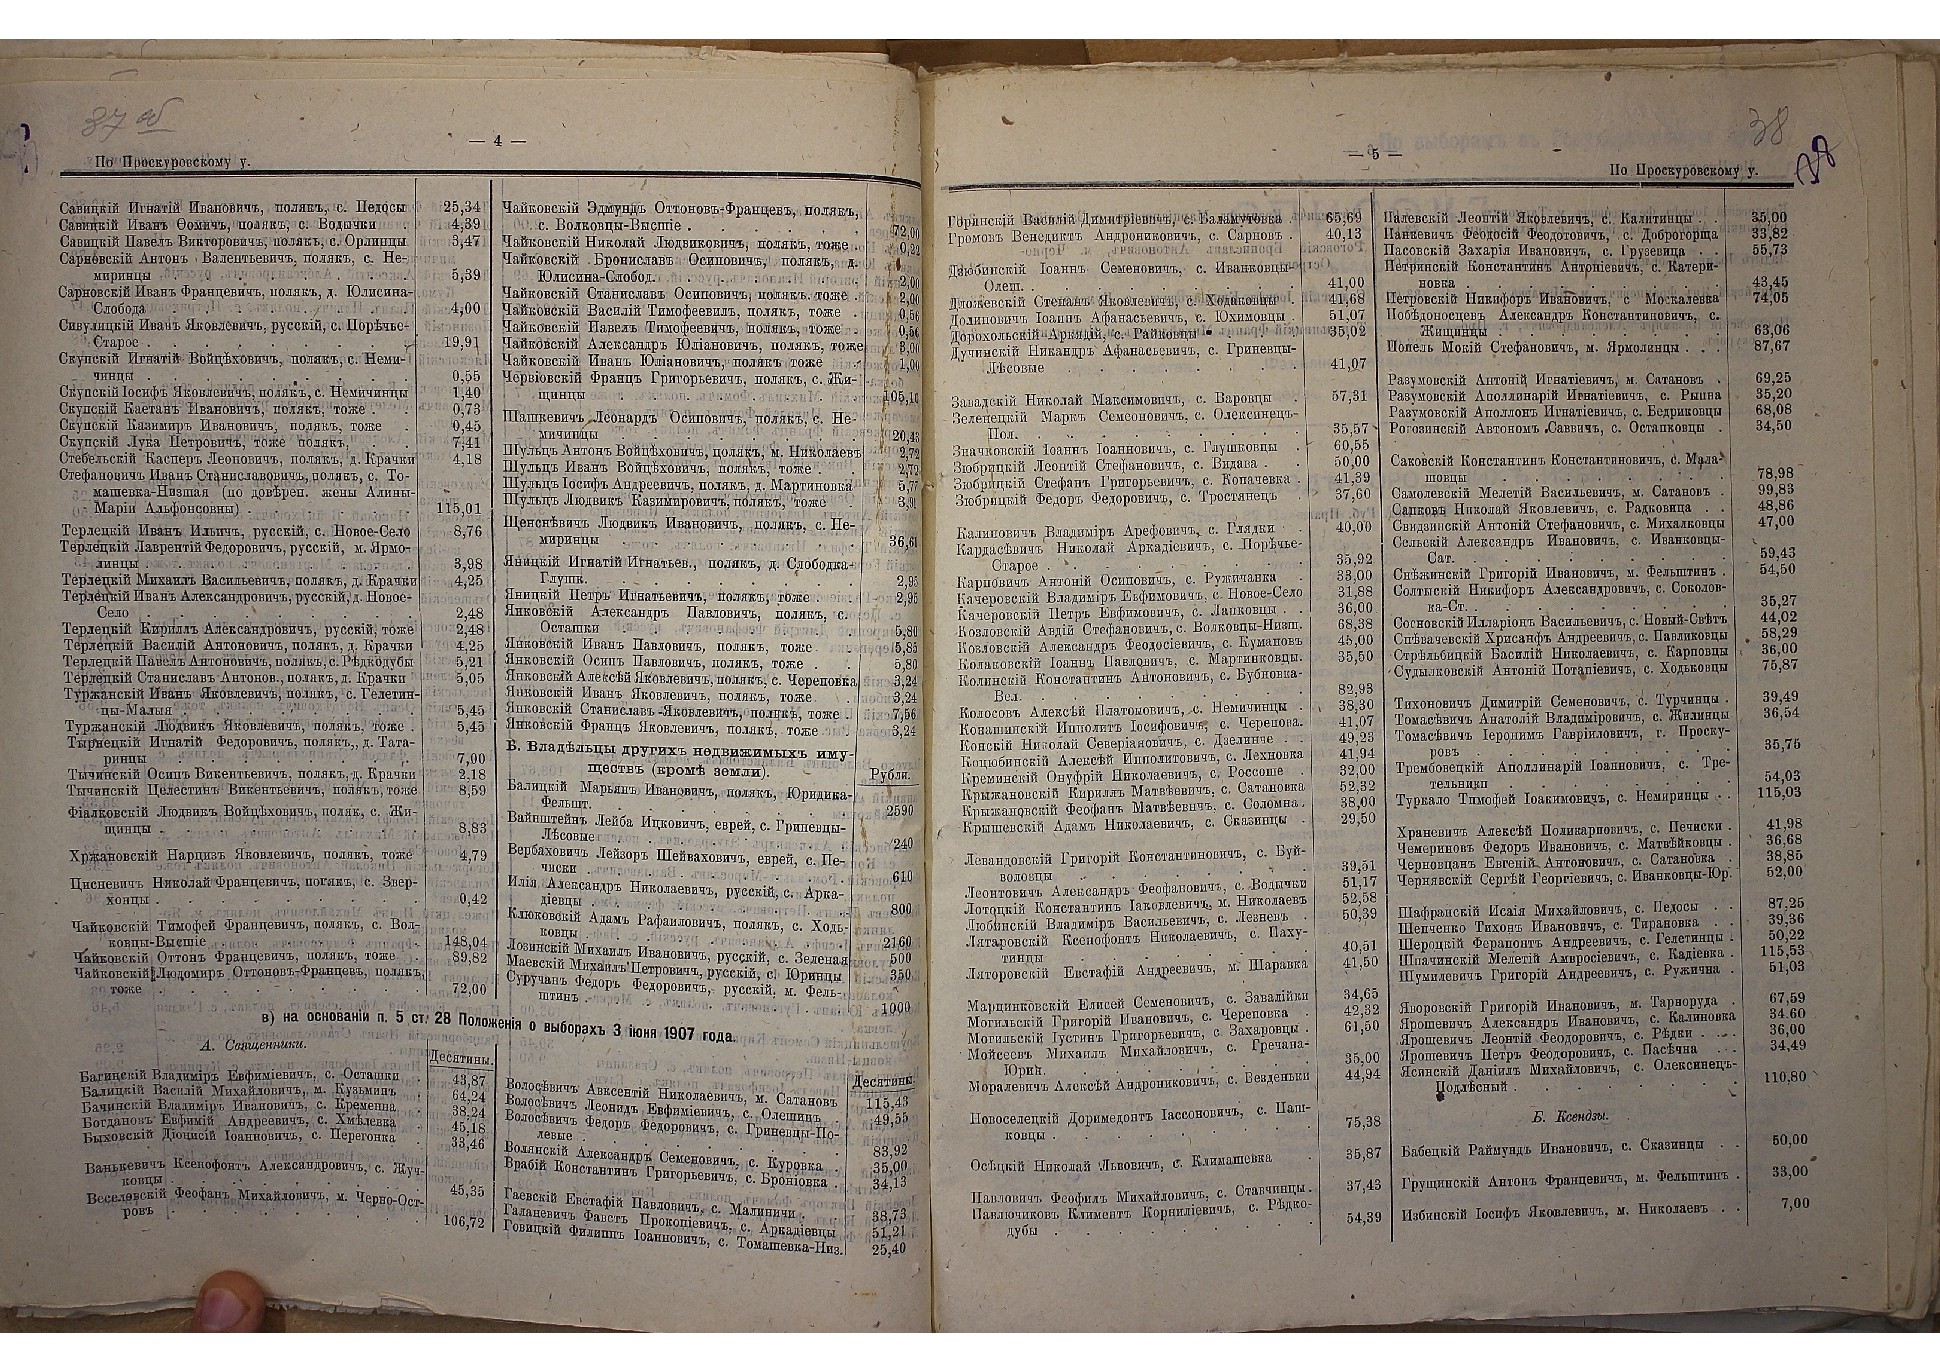 37 об
— 4 —
По Проскуровскому у.
Савицкій Игнатій Ивановичъ, полякъ, с. Педосы 25,34
Савицкій Иванъ Ѳомичъ, полякъ, с. Водычки . 4,39
Савицкій Павелъ Викторовичъ, полякъ, с. Орлинцы 3,47
Сарновскій Антонъ Валентьевичъ, полякъ, с. Не-
миринцы . . . . . . . 5,39
Сарновскій Иванъ Францевичъ, полякъ, д. Юлисина-
Слобода . . . . . . . 4,00
Сивулицкій Иванъ Яковлевичъ, русскій, с. Порѣчье-
Старое . . . . . . . 19,91
Скупскій Игнатій Войцѣховичъ, полякъ, с. Неми-
чинцы . . . . . . . 0,55
Скупскій Іосифъ Яковлевичъ, полякъ, с. Немичинцы 1,40
Скупскій Каетанъ Ивановичъ, полякъ, тоже . . 0,73
Скупскій Казимиръ Ивановичъ, полякъ, тоже . 0,45
Скупскій Лука Петровичъ, тоже полякъ, . 7,41
Стебельскій Касперъ Леоновичъ, полякъ, д. Крачки 4,18
Стефановичъ Иванъ Станиславовичъ, полякъ, с. То-
машевка-Низшая (по довѣрен. жены Алины-
Маріи Альфонсовны) . . . . . 115,01
Терлецкій Иванъ Ильичъ, русскій, с. Новое-Село 8,76
Терлецкій Лаврентій Федоровичъ, русскій, м. Ярмо-
линцы . . . . . . . 3,98
Терлецкій Михаилъ Васильевичъ, полякъ, д. Крачки 4,25
Терлецкій Иванъ Александровичъ, русскій, д. Новое-
Село . . . . . . . 2,48
Терлецкій Кириллъ Александровичъ, русскій, тоже 2,48
Терлецкій Василій Антоновичъ, полякъ, д. Крачки 4,25
Терлецкій Павелъ Антоновичъ, полякъ, с. Рѣдкодубы 5,21
Терлецкій Станиславъ Антонов., полякъ, д. Крачки 5,05
Туржанскій Иванъ Яковлевичъ, полякъ, с. Гелетин-
цы-Малыя . . . . . . 5,45
Туржанскій Людвикъ Яковлевичъ, полякъ, тоже . 5,45
Тырнецкій Игнатій Федоровичъ, полякъ,, д. Тата-
ринцы . . . . . . . 7,00
Тычинскій Осипъ Викентьевичъ, полякъ, д. Крачки 2.18
Тычинскій Целестинъ Викентьевичъ, полякъ, тоже 8,59
Фіалковскій Людвикъ Войцѣховичъ, поляк, с. Жи-
щинцы . . . . . . . 8,83
Хржановскій Нарцизъ Яковлевичъ, полякъ, тоже 4,79
Цисневичъ Николай Францевичъ, полякъ, с. Звер-
хонцы . . . . . . . 0,42
Чайковскій Тимофей Францевичъ, полякъ, с. Вол-
ковцы-Высшіе . . . . . . 148,04
Чайковскій Оттонъ Францевичъ, полякъ, тоже . 89,82
Чайковскій Людомиръ Оттоновъ-Францевъ, полякъ,
тоже . . . . . . . 72,00
Чайковскій Эдмундъ Оттоновъ-Францевъ, полякъ,
с. Волковцы-Высшіе . . . . . 72,00
Чайковскій Николай Людвиковичъ, полякъ, тоже 0,22
Чайковскій Брониславъ Осиповичъ, полякъ, д.
Юлисина-Слобод. . . . . . 2,00
Чайковскій Станиславъ Осиповичъ, полякъ. тоже 2,00
Чайковскій Василій Тимофеевилъ, полякъ, тоже . 0,56
Чайковскій Павелъ Тимофеевичъ, полякъ, тоже . 0,56
Чайковскій Александръ Юліановичъ, полякъ, тоже 3,00
Чайковскій Иванъ Юліановичъ, полякъ тоже . 1,00
Червіовскій Францъ Григорьевичъ, полякъ, с. Жи-
щинцы . . . . . . . 105,10
Шашкевичъ Леонардъ Осиповичъ, полякъ, с. Не-
мичинцы . . . . . . 20,43
Шульцъ Антонъ Войцѣховичъ, полякъ, м. Николаевъ 2,72
Шульцъ Иванъ Войцѣховичъ, полякъ, тоже . . 2,72
Шульцъ Іосифъ Андреевичъ, полякъ, д. Мартиновка 5,77
Шульцъ Людвикъ Казимировичъ, полякъ, тоже 3,91
Щенснѣвичъ Людвикъ Ивановичъ, полякъ, с. Не-
миринцы . . . . . . 36,61
Яницкій Игнатій Игнатьев., полякъ, д. Слободка-
Глушк. . . . . . . 2,95
Яницкій Петръ Игнатьевичъ, полякъ, тоже . . 2,95
Янковскій Александръ Павловичъ, полякъ, с.
Осташки . . . . . . 5,80
Янковскій Иванъ Павловичъ, полякъ, тоже . 5,85
Янковскій Осипъ Павловичъ, полякъ, тоже . . 5,80
Янковскій Алексѣй Яковлевичъ, полякъ, с. Череповка 3,24
Янковскій Иванъ Яковлевичъ, полякъ, тоже . 3,24
Янковскій Станиславъ Яковлевичъ, полякъ, тоже . 7,56
Янковскій Францъ Яковлевичъ, полякъ, тоже . . 3,24
Б. Владѣльцы другихъ недвижимыхъ иму-
ществъ (кромѣ земли).
Рубли.
Балицкій Марьянъ Ивановичъ, полякъ, Юридика-
Фельшт. . . . . . . 2590
Вайнштейнъ Лейба Ицковичъ, еврей, с. Гриневцы-
Лѣсовые . . . . . . 240
Вербаховичъ Лейзоръ Шейваховичъ, еврей, с. Пе-
чиски . . . . . . . 610
Илія Александръ Николаевичъ, русскій, с. Арка-
діевцы . . . . . . . 800
Клюковскій Адамъ Рафаиловичъ, полякъ, с. Ходь-
ковцы . . . . . . . 2160
Лозинскій Михаилъ Ивановичъ, русскій, с. Зеленая 500
Маевскій Михаилъ Петровичъ, русскій, с. Юринцы 350
Суручанъ Федоръ Федоровичъ, русскій, м. Фель-
штинъ . . . . . . . 1000
в) на основаніи п. 5 ст. 28 Положенія о выборахъ 3 іюня 1907 года.
А. Священники.
Десятины.
Багинскій Владиміръ Евфиміевичъ, с. Осташки . 43,87
Балицкій Василій Михайловичъ, м. Кузьминъ . 64,24
Бачинскій Владиміръ Ивановичъ, с. Кременна . 38,24
Богдановъ Евфимій Андреевичъ, с. Хмѣлевка . 45,18
Быховскій Діонисій Іоанновичъ, с. Перегонка . 33,46
Ванькевичъ Ксенофонтъ Александровичъ, с. Жуч-
ковцы . . . . . . . 45,35
Веселовскій Феофанъ Михайловичъ, м. Черно-Ост-
ровъ . . . . . . . 106,72
Десятины.
Волосѣвичъ Авксентій Николаевичъ, м. Сатановъ 115,43
Волосѣвичъ Леонидъ Евфиміевичъ, с. Олешинъ . 49,55
Волосѣвичъ Федоръ Федоровичъ, с. Гриневцы-По-
левые . . . . . . . 83,92
Волянскій Александръ Семеновичъ, с. Куровка . 35,00
Врабій Константинъ Григорьевичъ, с. Броніовка . 34,13
Гаевскій Евстафій Павловичъ, с. Малиничи . . 38,73
Галаневичъ Фавстъ Прокопіевичъ, с. Аркадіевцы 51,21
Говицкій Филиппъ Іоанновичъ, с. Томашевка-Низ. 25,40
38
38
— 5 —
По Проскуровскому у.
Горинскій Василій Димитріевичъ, с. Баламутовка . 65,69
Громовъ Венедиктъ Андрониковичъ, с. Сарновъ . 40,13
Дзюбинскій Іоаннъ Семеновичъ, с. Иванковцы-
Олеш. . . . . . . . 41,00
Дложевскій Степанъ Яковлевичъ, с. Ходаковцы 41,68
Долиновичъ Іоаннъ Афанасьевичъ, с. Юхимовцы . 51,07
Дорохольскій Аркадій, с. Райковцы . . 35,02
Дучинскій Никандръ Афанасьевичъ, с. Гриневцы-
Лѣсовые . . . . . . 41,07
Завадскій Николай Максимовичъ, с. Варовцы . 57,31
Зеленецкій Маркъ Семеоновичъ, с. Олексинецъ-
Пол. . . . . . . . 35,57
Значковскій Іоаннъ Іоанновичъ, с. Глушковцы . 60,55
Зюбрицкій Леонтій Стефановичъ, с. Видава . . 50,00
Зюбрицкій Стефанъ Григорьевичъ, с. Копачевка . 41,39
Зюбрицкій Федоръ Федоровичъ, с. Тростянецъ . 37,60
Калиновичъ Владиміръ Арефовичъ, с. Глядки . 40,00
Кардасѣвичъ Николай Аркадіевичъ, с. Порѣчье-
Старое . . . . . . . 35,92
Карповичъ Антоній Осиповичъ, с. Ружичанка . 33,00
Качеровскій Владиміръ Евфимовичъ, с. Новое-Село 31,88
Качеровскій Петръ Евфимовичъ, с. Лапковцы . . 36,00
Козловскій Авдій Стефановичъ, с. Волковцы-Низш. 68,38
Козловскій Александръ Феодосіевичъ, с. Кумановъ 45,00
Колаковскій Іоаннъ Павловичъ, с. Мартинковцы. 35,50
Колинскій Константинъ Антоновичъ, с. Бубновка-
Вел. . . . . . . . 82,93
Колосовъ Алексѣй Платоновичъ, с. Немичинцы . 38,30
Конашинскій Ипполитъ Іосифовичъ, с. Черепова. 41,07
Конскій Николай Северіановичъ, с. Дзелинче . . 49,23
Коцюбинскій Алексѣй Ипполитовичъ, с. Лехновка 41,94
Креминскій Онуфрій Николаевичъ, с. Россоше . 32,00
Крыжановскій Кириллъ Матвѣевичъ, с. Сатановка 52,32
Крыжановскій Феофанъ Матвѣевичъ, с. Соломна. 38,00
Крышевскій Адамъ Николаевичъ, с. Сказинцы . 29,50
Левандовскій Григорій Константиновичъ, с. Буй-
воловцы . . . . . . 39,51
Леонтовичъ Александръ Феофановичъ, с. Водычки 51,17
Лотоцкій Константинъ Іаковлевичъ, м. Николаевъ 52,58
Любинскій Владиміръ Васильевичъ, с. Лезневъ . 50,39
Лятаровскій Ксенофонтъ Николаевичъ, с. Паху-
тинцы . . . . . . . 40,51
Ляторовскій Евстафій Андреевичъ, м. Шаравка 41,50
Марцинковскій Елисей Семеновичъ, с. Завалійки 34,65
Могильскій Григорій Ивановичъ, с. Череповка . 42,32
Могильскій Іустинъ Григорьевичъ, с. Захаровцы . 61,50
Мойсеевъ Михаилъ Михайловичъ, с. Гречана-
Юрин. . . . . . . . 35,00
Моралевичъ Алексѣй Андрониковичъ, с. Везденьки 44,94
Новоселецкій Доримедонтъ Іассоновичъ, с. Паш-
ковцы . . . . . . . 75,38
Осѣцкій Николай Львовичъ, с. Климашевка . 35,87
Павловичъ Феофилъ Михайловичъ, с. Ставчинцы. 37,43
Павлючиковъ Климентъ Корниліевичъ, с. Рѣдко-
дубы . . . . . . . 54,39
Палевскій Леонтій Яковлевичъ, с. Калитинцы . . 35,00
Панкевичъ Феодосій Феодотовичъ, с. Доброгорща 33,82
Пасовскій Захарія Ивановичъ, с. Грузевица . . 55,73
Петринскій Константинъ Антоніевичъ, с. Катери-
новка . . . . . . . 43,45
Петровскій Никифоръ Ивановичъ, с Москалевка 74,05
Побѣдоносцевъ Александръ Константиновичъ, с.
Жищинцы . . . . . . 63,06
Попель Мокій Стефановичъ, м. Ярмолинцы . . . 87,67
Разумовскій Антоній Игнатіевичъ, м. Сатановъ . 69,25
Разумовскій Аполлинарій Игнатіевичъ, с. Рыпна 35,20
Разумовскій Аполлонъ Игнатіевичъ, с. Бедриковцы 68,08
Рогозинскій Автономъ Саввичъ, с. Остапковцы . 34,50
Саковскій Константинъ Константиновичъ, с. Мала-
шовцы . . . . . . . 78,98
Самолевскій Мелетій Васильевичъ, м. Сатановъ . 99,83
Сапковъ Николай Яковлевичъ, с. Радковица . . 48,86
Свидзинскій Антоній Стефановичъ, с. Михалковцы 47,00
Сельскій Александръ Ивановичъ, с. Иванковцы-
Сат. . . . . . . . 59,43
Снѣжинскій Григорій Ивановичъ, м. Фельштинъ . 54,50
Солтыскій Никифоръ Александровичъ, с. Соколов-
ка-Ст. . . . . . . . 35,27
Сосновскій Илларіонъ Васильевичъ, с. Новый-Свѣтъ 44,02
Спѣвачевскій Хрисанфъ Андреевичъ, с. Павликовцы 58,29
Стрѣльбицкій Василій Николаевичъ, с. Карповцы 36,00
Судылковскій Антоній Потапіевичъ, с. Ходьковцы 75,87
Тихоновичъ Димитрій Семеновичъ, с. Турчинцы . 39,49
Томасѣвичъ Анатолій Владиміровичъ, с. Жилинцы 36,54
Томасѣвичъ Іеронимъ Гавріиловичъ, г. Проску-
ровъ . . . . . . . 35,75
Трембовецкій Аполлинарій Іоанновичъ, с. Тре-
тельники . . . . . . 54,03
Туркало Тимофей Іоакимовичъ, с. Немяринцы . . 115,03
Храневичъ Алексѣй Поликарповичъ, с. Печиски . 41,98
Чемериновъ Федоръ Ивановичъ, с. Матвѣйковцы . 36,68
Черновцанъ Евгеній Антоновичъ, с. Сатановка . 38,85
Чернявскій Сергѣй Георгіевичъ, с. Иванковцы-Юр. 52,00
Шафранскій Исаія Михайловичъ, с. Педосы . . 87,25
Шепченко Тихонъ Ивановичъ, с. Тирановка . . 39,36
Шероцкій Ферапонтъ Андреевичъ, с. Гелетинцы . 50,22
Шпачинскій Мелетій Амвросіевичъ, с. Кадіевка . 115,53
Шумилевичъ Григорій Андреевичъ, с. Ружична . 51,03
Яворовскій Григорій Ивановичъ, м. Тарноруда . 67,59
Ярошевичъ Александръ Ивановичъ, с. Калиновка 34.60
Ярошевичъ Леонтій Феодоровичъ, с. Рѣдки . . . 36,00
Ярошевичъ Петръ Феодоровичъ, с. Пасѣчна . . . 34,49
Ясинскій Даніилъ Михайловичъ, с. Олексинецъ-
Подлѣсный . . . . . . 110,80
Б. Ксендзы.
Бабецкій Раймундъ Ивановичъ, с. Сказинцы . . 50,00
Грущинскій Антонъ Францевичъ, м. Фельштинъ . 33,00
Избинскій Іосифъ Яковлевичъ, м. Николаевъ . . 7,00